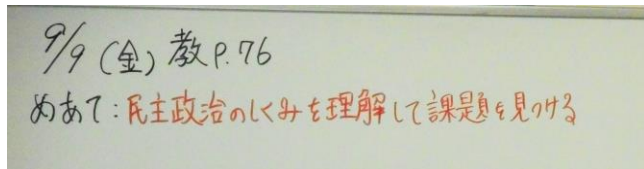 9/9 (金) 教P.76
めあて:民主政治のしくみを理解して課題を見つける